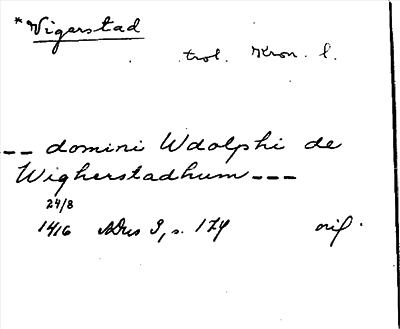 *Vigerstad
trol. Kron. l.
--- domini Wdolphi de
Wigherstadhum ---
24/8
1416 ADus 3, s. 174 orig.